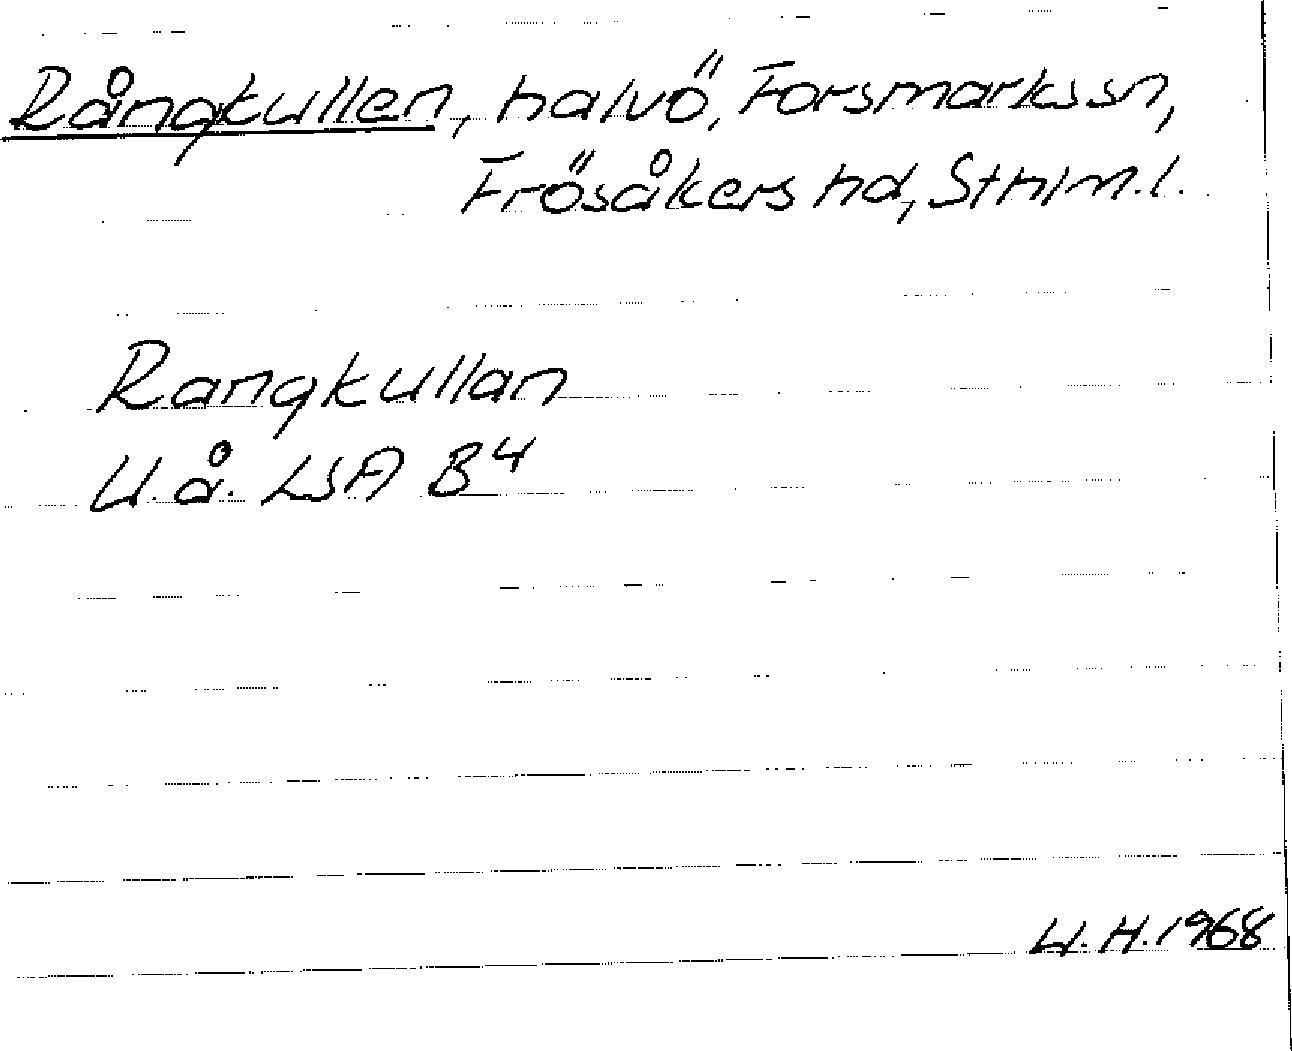 Rångkullen, halvö, Forsmarks sn,
Frösåkers hd, Sthlm.l.
Rangkullan
U.å. LSA B4
U.H.1968